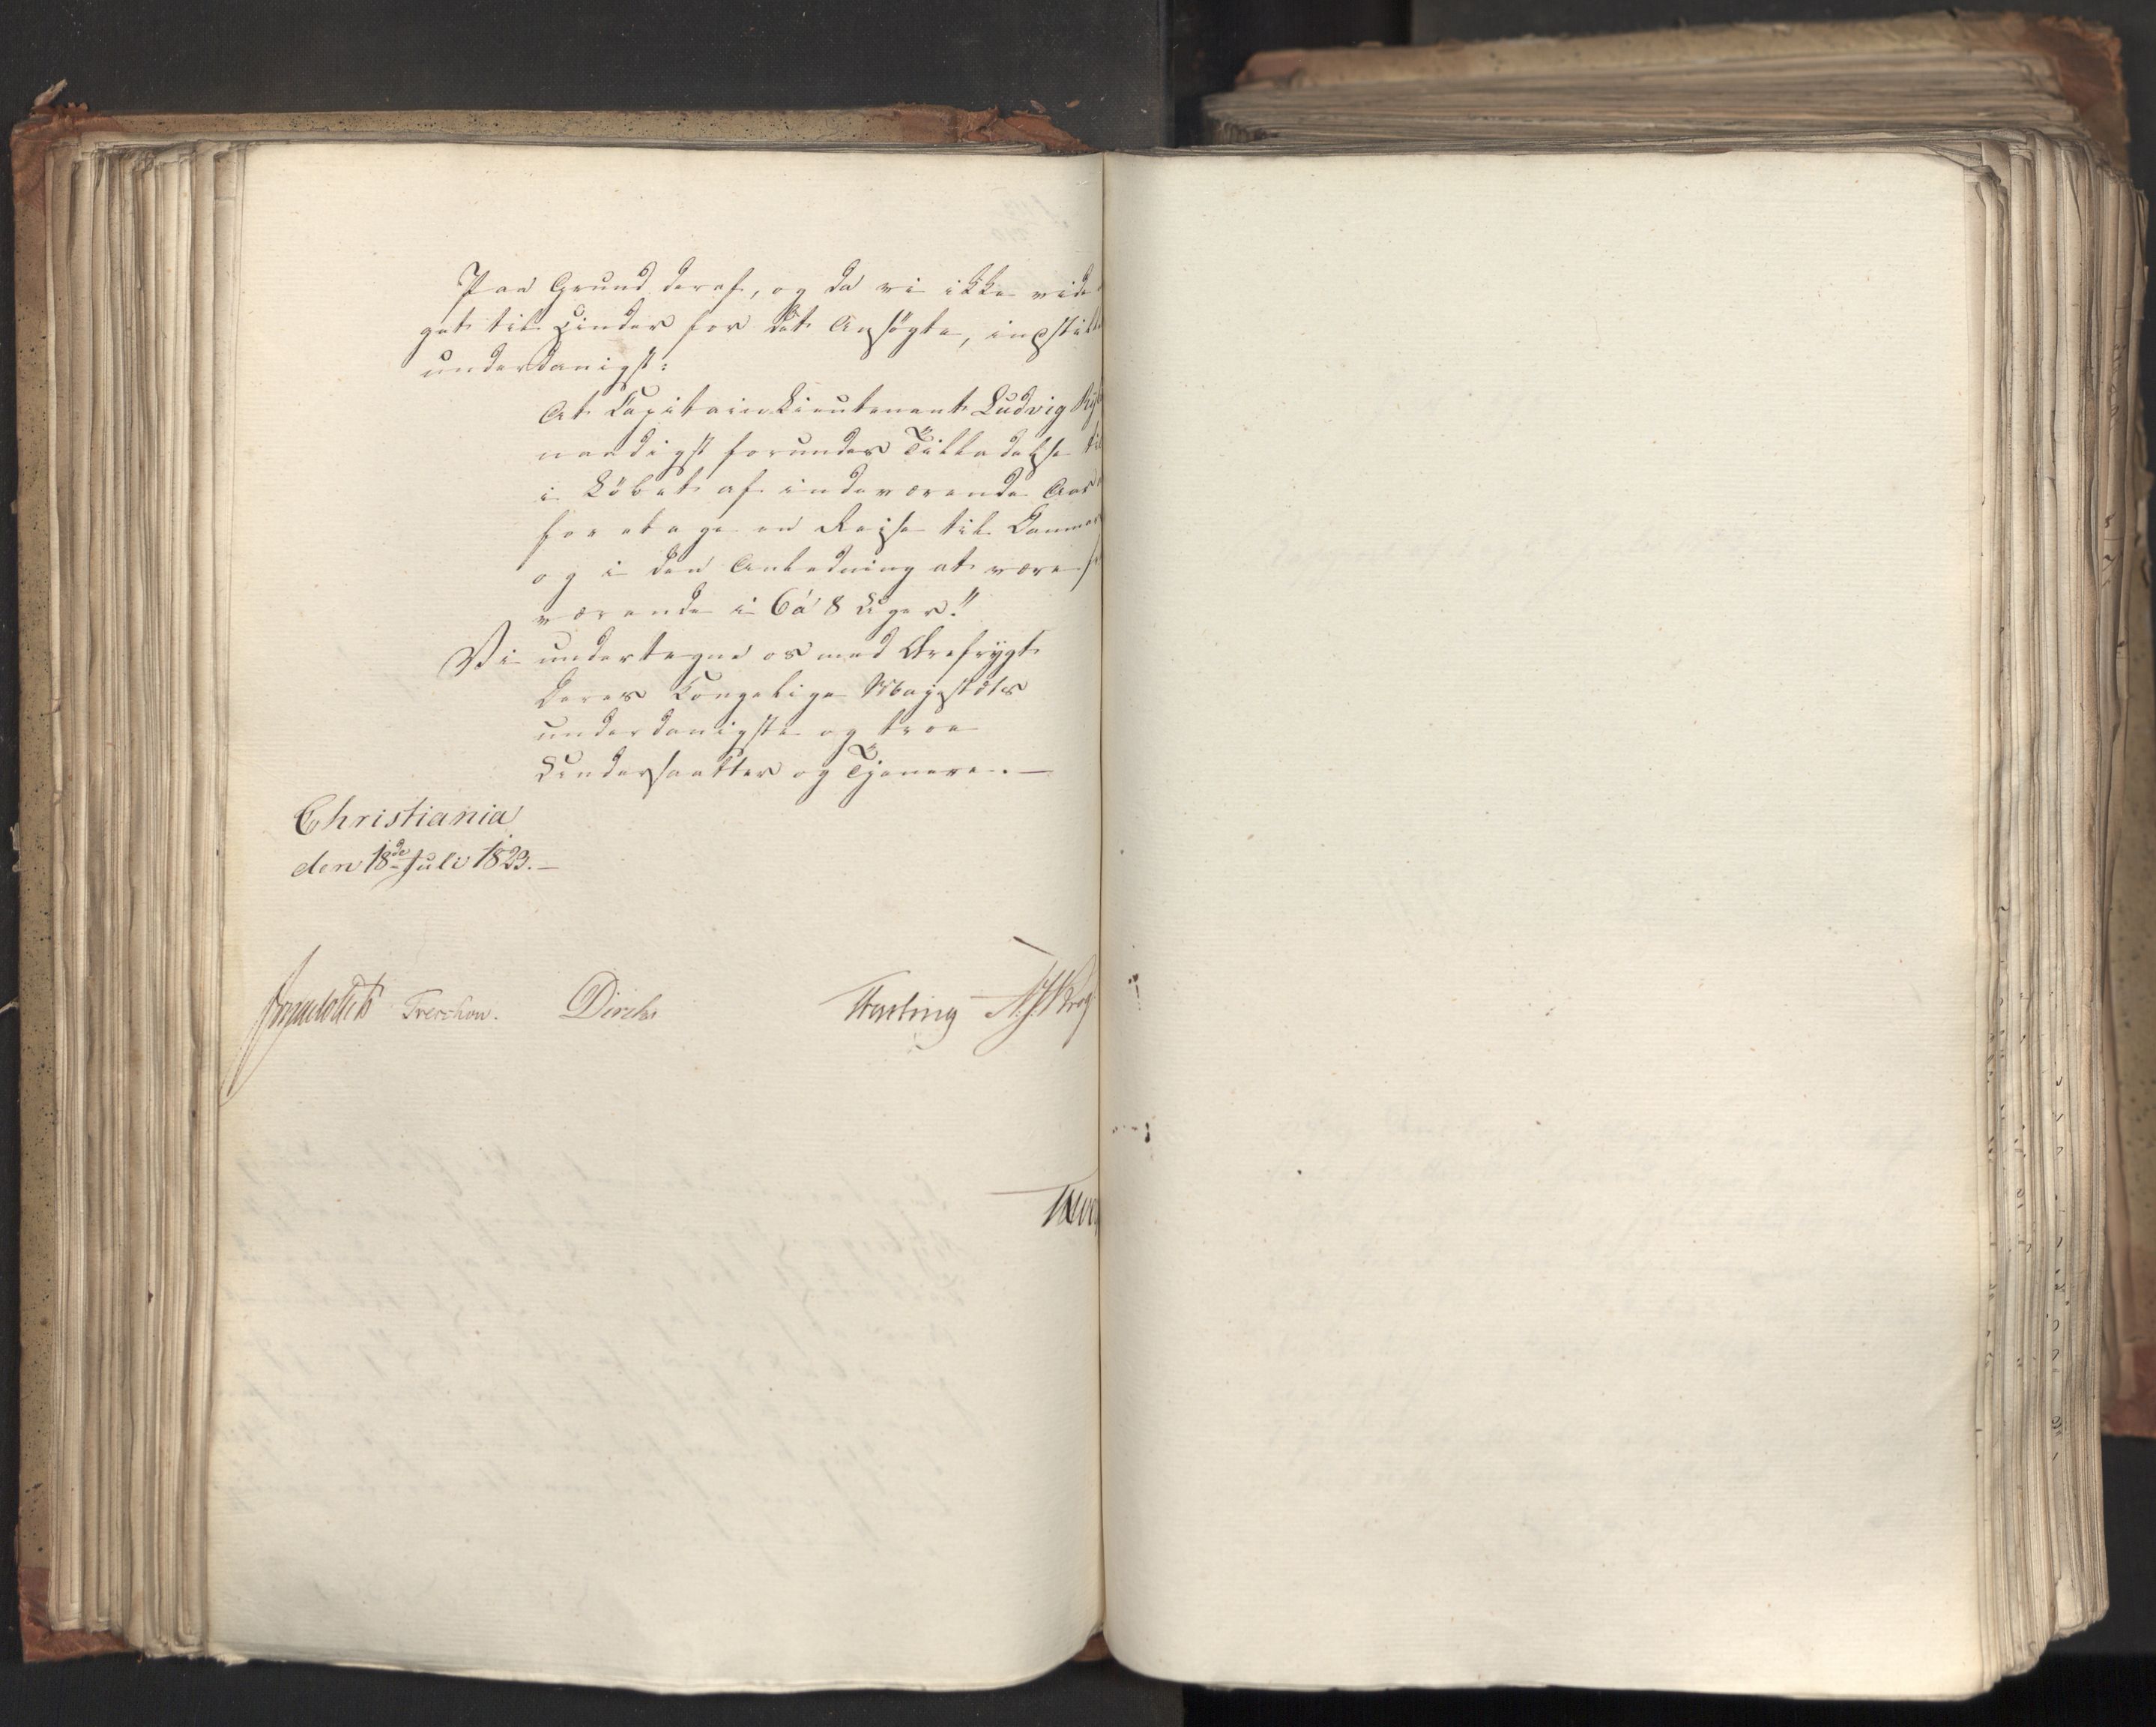 Paa Grund deraf, og da vi ikke vide
get til Hinder for det Ansögte, indstille
underdanigst:
At Capitainlieutenant Ludvig
naadigst forundes Tilladelse til
i Löbet af indeværende Aar
foretage en Reise til Danmar
og i den Anledning at være
værende i 6 á 8 Uger."
Vi undertegne os med Ærefrygt
Deres Kongelige Majestæts
underdanigste og troe
Undersaatter og Tjenere. —
Christiania
den 18de Juli 1823. —
Treschow. Diriks